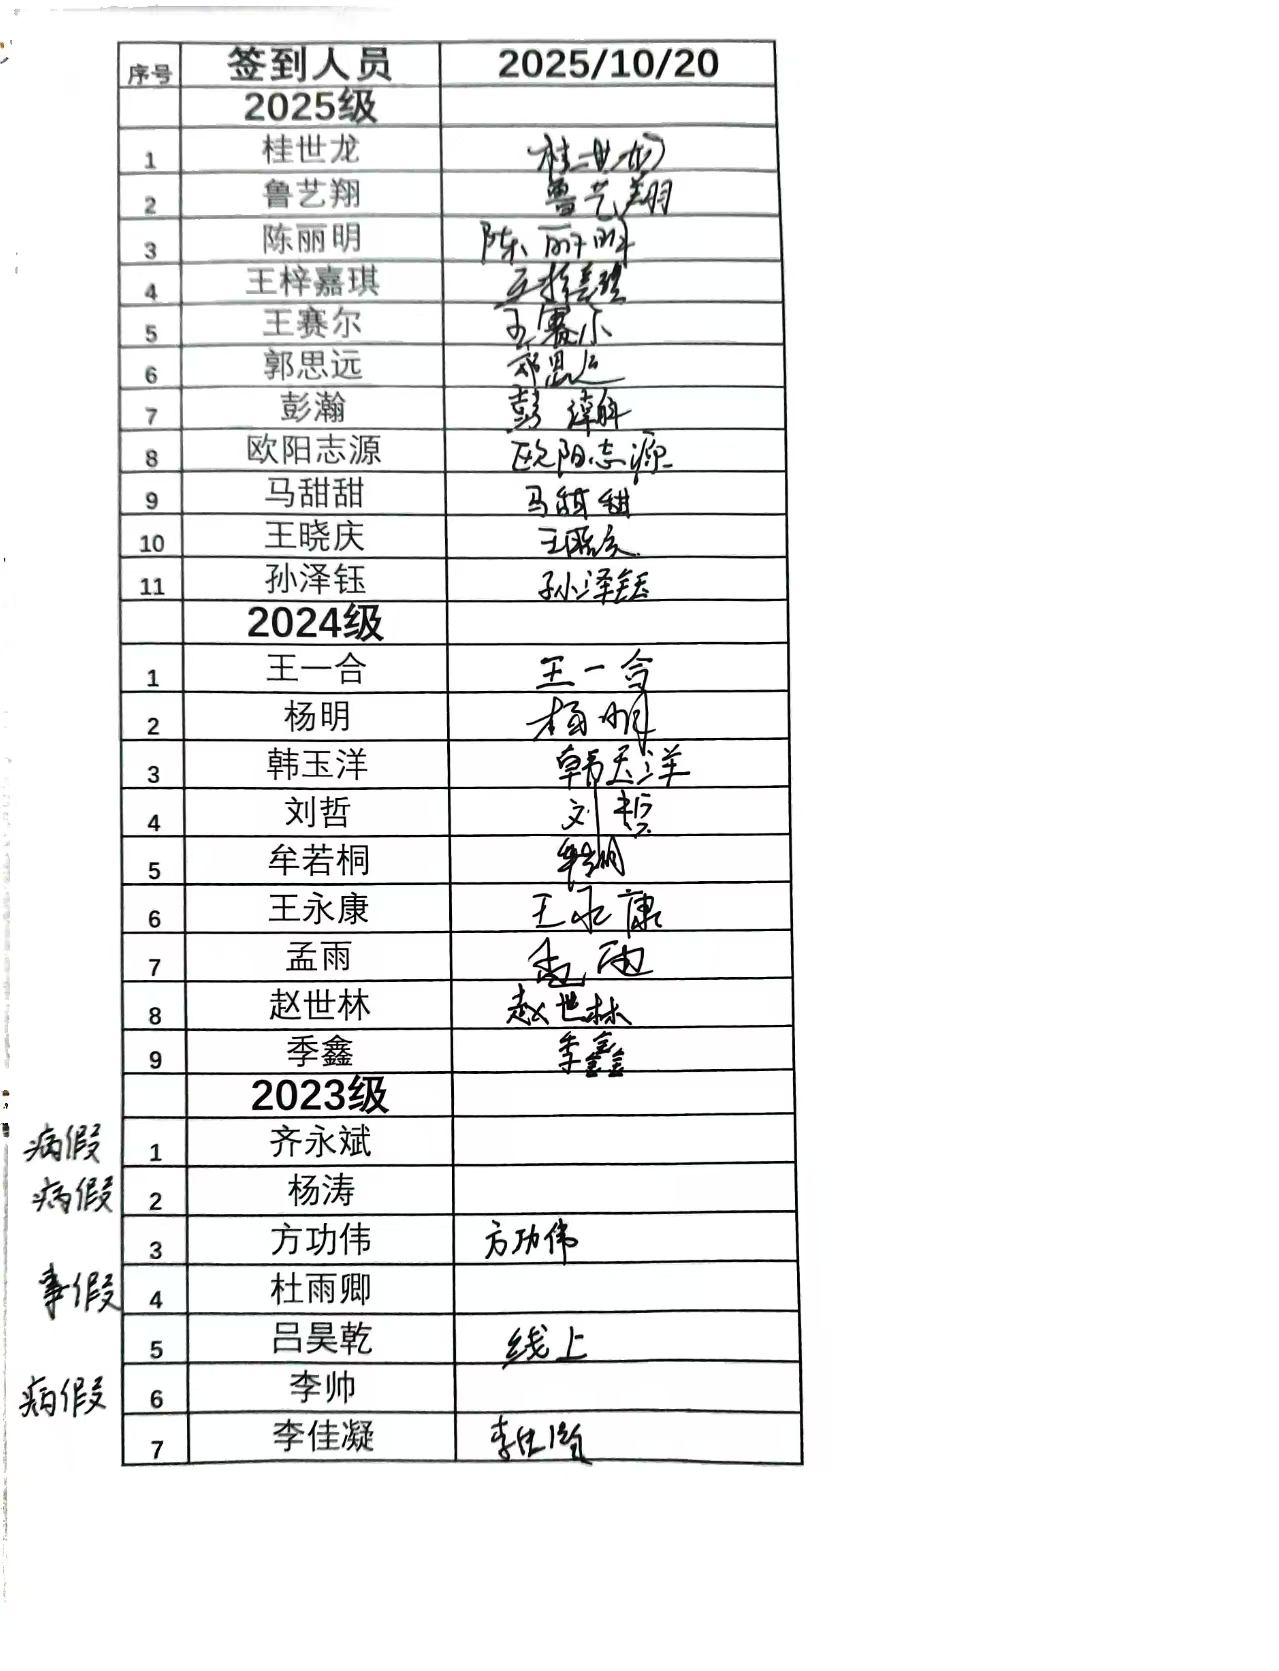 序号 签到人员 2025/10/20
2025级
1 桂世龙 桂世龙
2 鲁艺翔 鲁艺翔
3 陈丽明 陈丽明
4 王梓嘉琪 王梓嘉琪
5 王赛尔 王赛尔
6 郭思远 郭思远
7 彭瀚 彭瀚
8 欧阳志源 欧阳志源
9 马甜甜 马甜甜
10 王晓庆 王晓庆
11 孙泽钰 孙泽钰
2024级
1 王一合 王一合
2 杨明 杨明
3 韩玉洋 韩玉洋
4 刘哲 刘哲
5 牟若桐
6 王永康 王永康
7 孟雨 孟雨
8 赵世林 赵世林
9 季鑫 季鑫
2023级
病假 1 齐永斌
病假 2 杨涛
3 方功伟 方功伟
事假 4 杜雨卿
5 吕昊乾 线上
病假 6 李帅
7 李佳凝 李佳凝